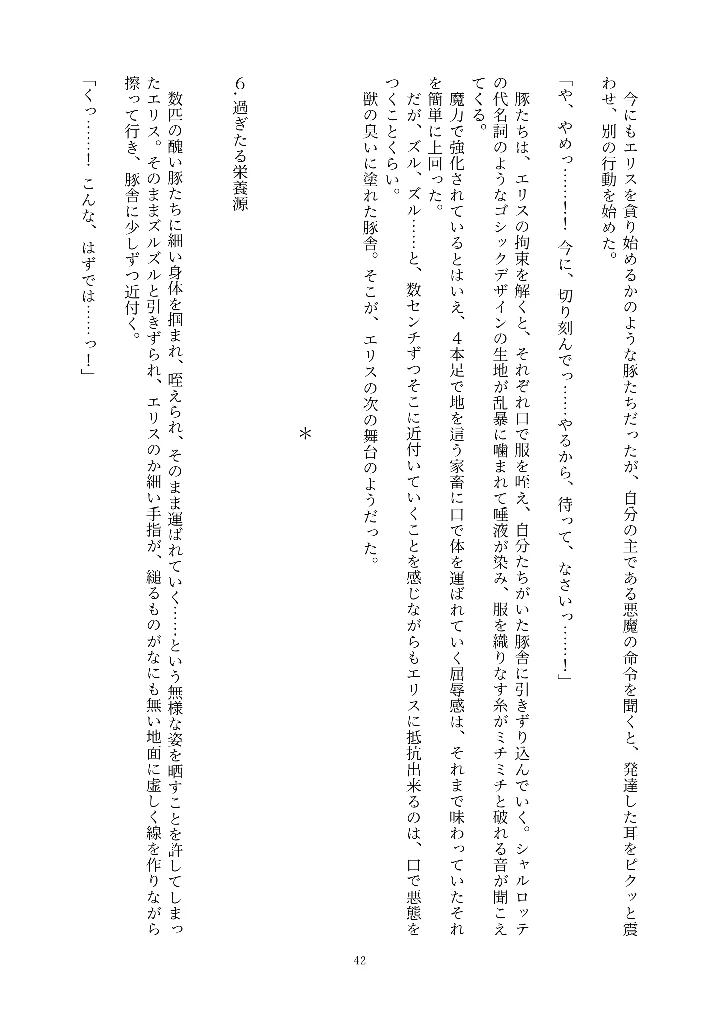 今にもエリスを貪り始めるかのような豚たちだったが、自分の主である悪魔の命令を聞くと、発達した耳をピクッと震
わせ、別の行動を始めた。
「や、やめっ……！！ 今に、切り刻んでっ……やるから、待って、なさいっ……！」
豚たちは、エリスの拘束を解くと、それぞれ口で服を咥え、自分たちがいた豚舎に引きずり込んでいく。シャルロッテ
の代名詞のようなゴシックデザインの生地が乱暴に噛まれて唾液が染み、服を織りなす糸がミチミチと破れる音が聞こえ
てくる。
魔力で強化されているとはいえ、４本足で地を這う家畜に口で体を運ばれていく屈辱感は、それまで味わっていたそれ
を簡単に上回った。
だが、ズル、ズル……と、数センチずつそこに近付いていくことを感じながらもエリスに抵抗出来るのは、口で悪態を
つくことくらい。
獣の臭いに塗れた豚舎。そこが、エリスの次の舞台のようだった。
＊
６．過ぎたる栄養源
数匹の醜い豚たちに細い身体を掴まれ、咥えられ、そのまま運ばれていく……という無様な姿を晒すことを許してしまっ
たエリス。そのままズルズルと引きずられ、エリスのか細い手指が、縋るものがなにも無い地面に虚しく線を作りながら
擦って行き、豚舎に少しずつ近付く。
「くっ……！ こんな、はずでは……っ！」
42